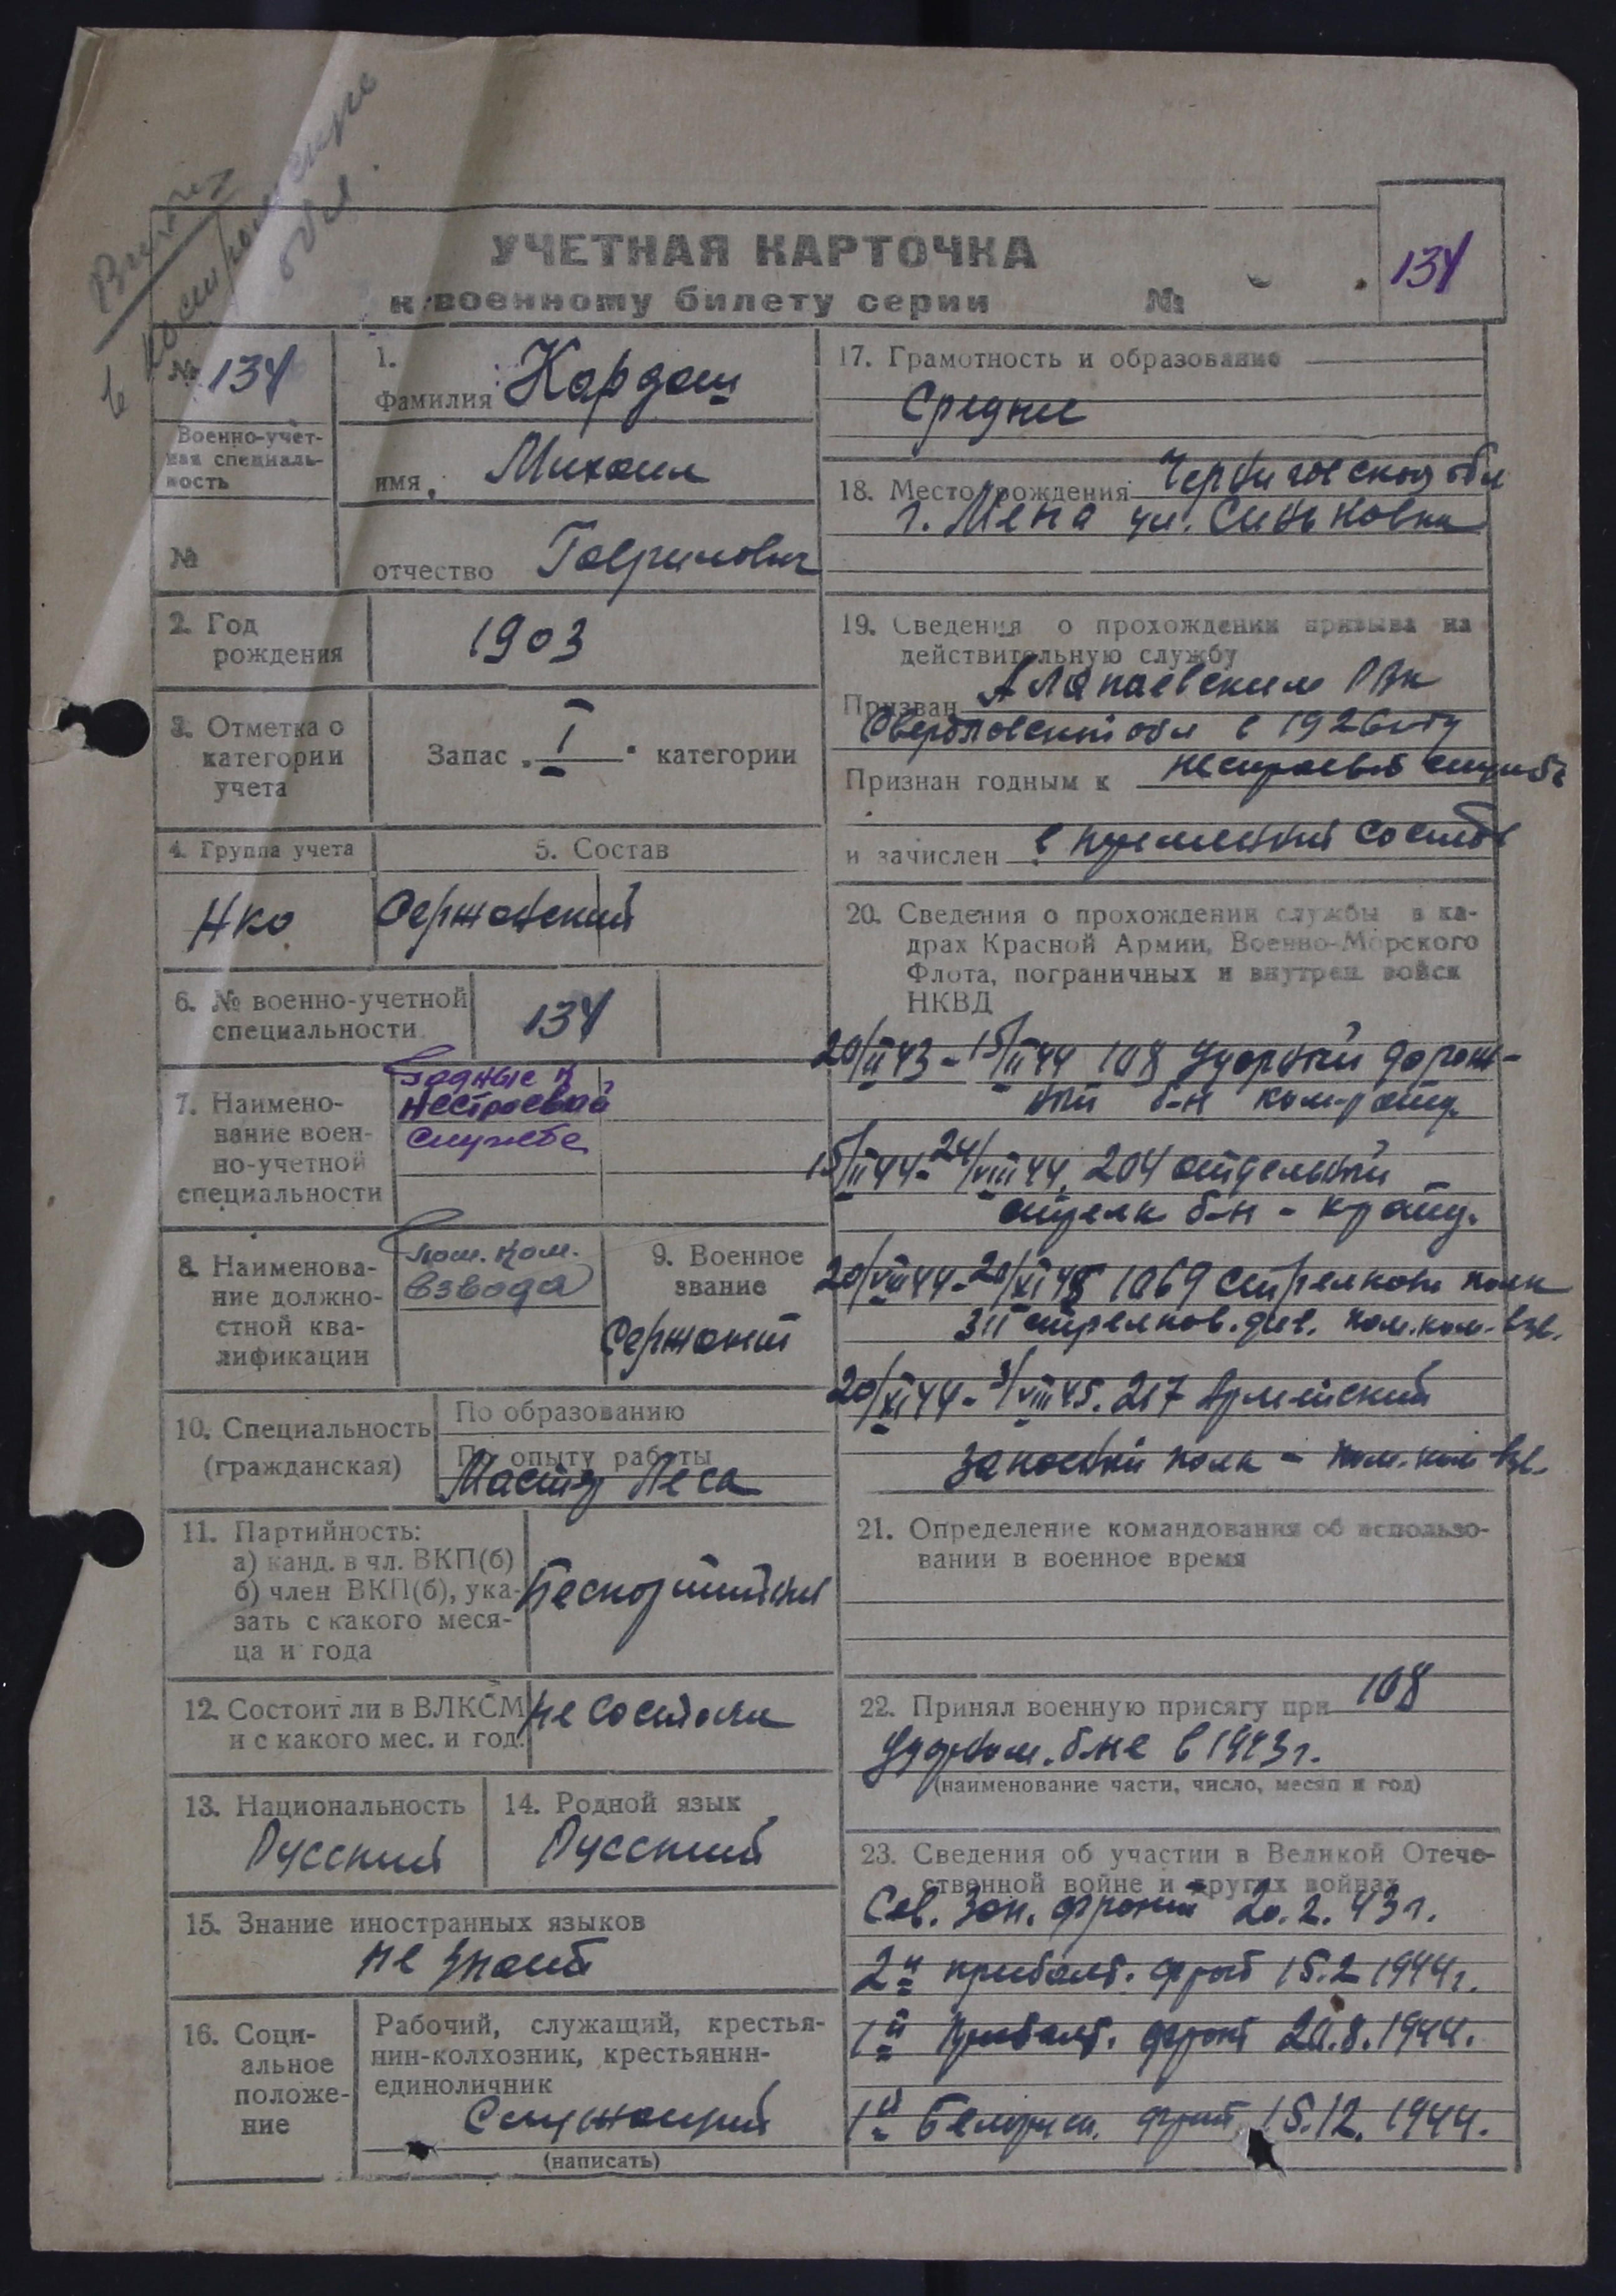 в Костромскую
обл.
УЧЕТНАЯ КАРТОЧКА
к военному билету серии №
134
№ 134
Военно-учет-
ная специаль-
ность
№
1.
Фамилия Кардаш
имя Михаил
отчество Гаврилович
2. Год
рождения
1903
3. Отметка о
категории
учета
Запас „ I " категории
4. Группа учета
НКО
5. Состав
Сержанский
6. № военно-учетной
специальности
134
7. Наимено-
вание воен-
но-учетной
специальности
Годные к
нестроевой
службе
8. Наименова-
ние должно-
стной ква-
лификации
Пом. ком.
взвода
9. Военное
звание
Сержант
10. Специальность
(гражданская)
По образованию
По опыту работы
Мастер Леса
11. Партийность:
а) канд. в чл. ВКП(б)
б) член ВКП(б), ука-
зать с какого меся-
ца и года
Беспартийный
12. Состоит ли в ВЛКСМ
и с какого мес. и год.
не состоял
13. Национальность
Русский
14. Родной язык
Русский
15. Знание иностранных языков
не знает
16. Соци-
альное
положе-
ние
Рабочий, служащий, крестья-
нин-колхозник, крестьянин-
единоличник
Служащий
(написать)
17. Грамотность и образование
Среднее
18. Место рождения Черниговская обл
г. Мена ул. Синьковка
19. Сведения о прохождении призыва на
действительную службу
Призван Алапаевским РВК
Свердловской обл в 1926 году
Признан годным к нестроевой службе
и зачислен в переменный состав
20. Сведения о прохождении службы в ка-
драх Красной Армии, Военно-Морского
Флота, пограничных и внутрен. войск
НКВД
20/II 43 - 15/II 44 108 Ударный дорож-
ный б-н ком-р отд.
15/II 44 - 24/VIII 44. 204 отдельный
стрелк б-н - кр отд.
20/VIII 44 - 20/XI 45 1069 стрелков полк
311 стрелков. див. пом. ком. взв.
20/XI 44 - 3/VIII 45. 217 Армейский
запасный полк - пом. ком взв.
21. Определение командования об использо-
вании в военное время
22. Принял военную присягу при 108
Ударном. б-не в 1943 г.
(наименование части, число, месяц и год)
23. Сведения об участии в Великой Отече-
ственной войне и других войнах
Сев. Зап. фронт 20. 2. 43 г.
2й прибалт. фронт 15. 2 1944 г.
1й Прибалт. фронт 20. 8. 1944.
1й Белорусс. фронт 15. 12. 1944.